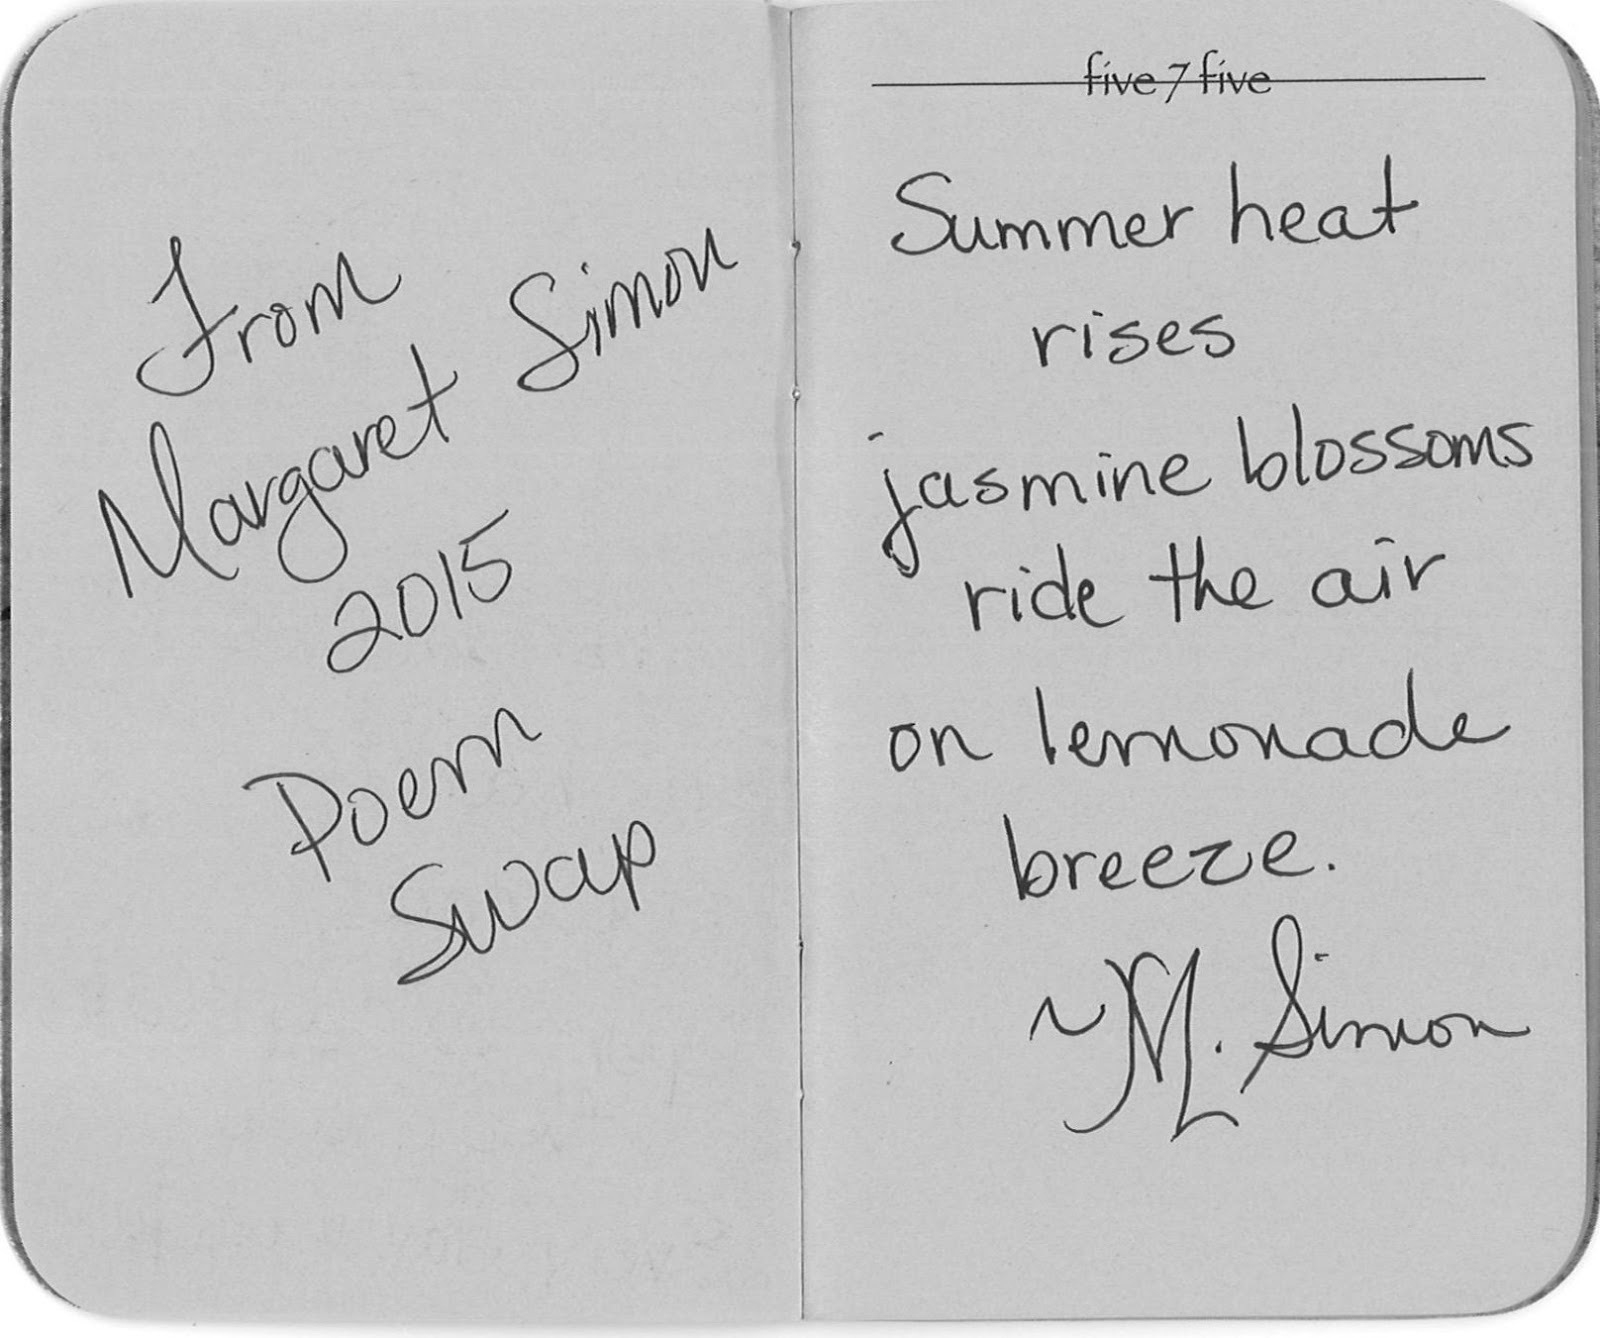 From
Margaret Simon
2015
Poem
Swap
five 7 five
Summer heat
rises
jasmine blossoms
ride the air
on lemonade
breeze.
~M. Simon